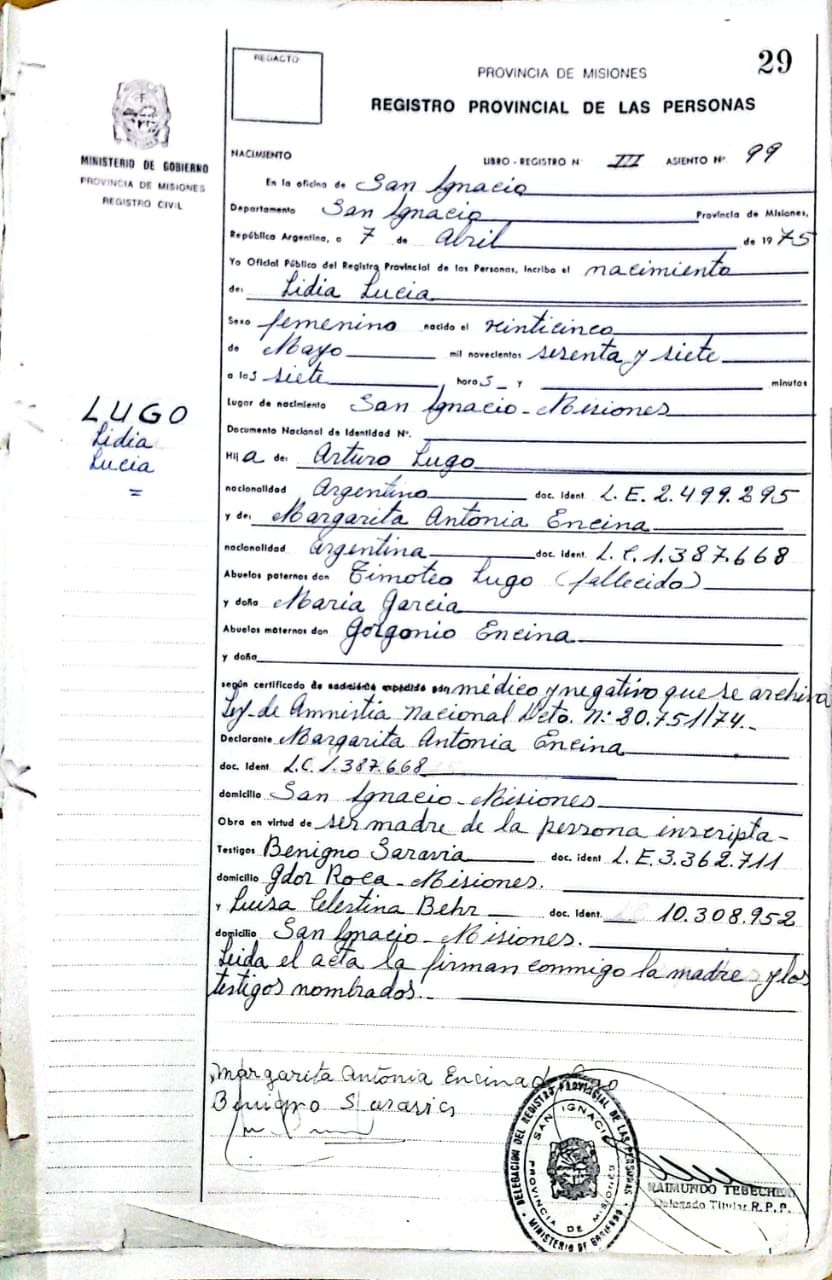 REDACTO
29
PROVINCIA DE MISIONES
REGISTRO PROVINCIAL DE LAS PERSONAS
MINISTERIO DE GOBIERNO
PROVINCIA DE MISIONES
REGISTRO CIVIL
NACIMIENTO LIBRO - REGISTRO N III ASIENTO Nº 99
En la oficina de San Ignacio
Departamento San Ignacio Provincia de Misiones,
República Argentina, a 7 de Abril de 1975
Yo Oficial Público del Registro Provincial de las Personas, inscribo el nacimiento
de: Lidia Lucia
Sexo femenino nacido el veinticinco
de Mayo mil novecientos sesenta y siete
a las siete horas y minutos
Lugar de nacimiento San Ignacio - Misiones
LUGO
Lidia
Lucia
=
Documento Nacional de Identidad Nº.
Hija de: Arturo Lugo
nacionalidad Argentino doc. Ident. L.E. 2.499.295
y de: Margarita Antonia Encina
nacionalidad Argentina doc. Ident. L.C. 1.387.668
Abuelos paternos don Timoteo Lugo (fallecido)
y doña María García
Abuelos maternos don Gorgonio Encina
y doña
según certificado de médico y negativo que se archiva
Ley de Amnistia Nacional Dcto. N: 20.751/74.-
Declarante Margarita Antonia Encina
doc. Ident L.C. 1.387.668
domicilio San Ignacio - Misiones
Obra en virtud de ser madre de la persona inscripta -
Testigos Benigno Saravia doc. ident L.E. 3.362.711
domicilio Gdor Roca - Misiones.
y Luisa Celestina Behr doc. Ident. 10.308.952
domicilio San Ignacio - Misiones.
Leida el acta la firman conmigo la madre y los
testigos nombrados.-
Margarita Antonia Encina d
Benigno Saravia
DELEGACION DEL REGISTRO PROVINCIAL DE LAS PERSONAS
SAN IGNACIO
PROVINCIA DE MISIONES
MINISTERIO DE GOBIERNO
RAIMUNDO TEBECHERI
Delegado Titular R.P.P.